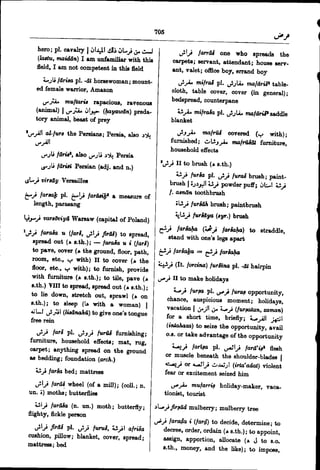 705
فرض
hero; pl. cavalry | لست من فرسان هذا الميدان
(lastu, maidān) I am unfamiliar with this
field, I am not competent in this field
فارسة fārisa pl. -āt horsewoman; mount-
ed female warrior, Amazon
مفترس muftaris rapacious, ravenous
(animal) | حيوان مفترس (ḥayawān) preda-
tory animal, beast of prey
الفرس al-furs the Persians; Persia, also بلاد
الفرس
فارس fāris², also بلاد فارس Persia
فارسي fārisī Persian (adj. and n.)
فرساي versāy Versailles
فرسخ farsaḵ pl. فراسخ farāsiḵ² a measure of
length, parasang
فرسوفيا varsōviyā Warsaw (capital of Poland)
فرش faraša u (farš, فراش firāš) to spread,
spread out (ه s.th.); — faraša u i (farš)
to pave, cover (ه the ground, floor, path,
room, etc., ب with) II to cover (ه the
floor, etc., ب with); to furnish, provide
with furniture (ه s.th.); to tile, pave (ه
s.th.) VIII to spread, spread out (ه s.th.);
to lie down, stretch out, sprawl (ه on
s.th.); to sleep (ها with a woman) |
افترش لسانه (lisānahū) to give one's tongue
free rein
فرش farš pl. فروش furūš furnishing;
furniture, household effects; mat, rug,
carpet; anything spread on the ground
as bedding; foundation (arch.)
فرشة farša bed; mattress
فراش farāš wheel (of a mill); (coll.; n.
un. ة) moths; butterflies
فراشة farāša (n. un.) moth; butterfly;
flighty, fickle person
فراش firāš pl. فرش furuš, افرشة afriša
cushion, pillow; blanket, cover, spread;
mattress; bed
فراش farrāš one who spreads the
carpets; servant, attendant; house serv-
ant, valet; office boy, errand boy
مفرش mifraš pl. مفارش mafāriš² table-
cloth, table cover, cover (in general);
bedspread, counterpane
مفرشة mifraša pl. مفارش mafāriš² saddle
blanket
مفروش mafrūš covered (ب with);
furnished; مفروشات mafrūšāt furniture,
household effects
فرش II to brush (ه s.th.)
فرشة furša pl. فرش furaš brush; paint-
brush | فرشة البودرة powder puff; فرشة اسنان
f. asnān toothbrush
فرشاة furšāh brush; paintbrush
فرشاية furšāya (syr.) brush
فرشح faršaḥa (فرشحة faršaḥa) to straddle,
stand with one's legs apart
فرشخ faršaḵa = فرشح faršaḥa
فرشينة (It. forcina) furšīna pl. -āt hairpin
فرص II to make holidays
فرصة furṣa pl. فرص furaṣ opportunity,
chance, auspicious moment; holidays,
vacation | فرصة من الزمن (furṣatan, zaman)
for a short time, briefly; انتهز الفرصة
(intahaza) to seize the opportunity, avail
o.s. or take advantage of the opportunity
فريصة farīṣa pl. فرائص farā'iṣ² flesh
or muscle beneath the shoulder-blades |
ارتعدت فرائصه or فريصته (irta'adat) violent
fear or excitement seized him
مفرص mufarriṣ holiday-maker, vaca-
tionist, tourist
فرصاد firṣād mulberry; mulberry tree
فرض faraḍa i (farḍ) to decide, determine; to
decree, order, ordain (ه s.th.); to appoint,
assign, apportion, allocate (ه ل to s.o.
s.th., money, and the like); to impose,